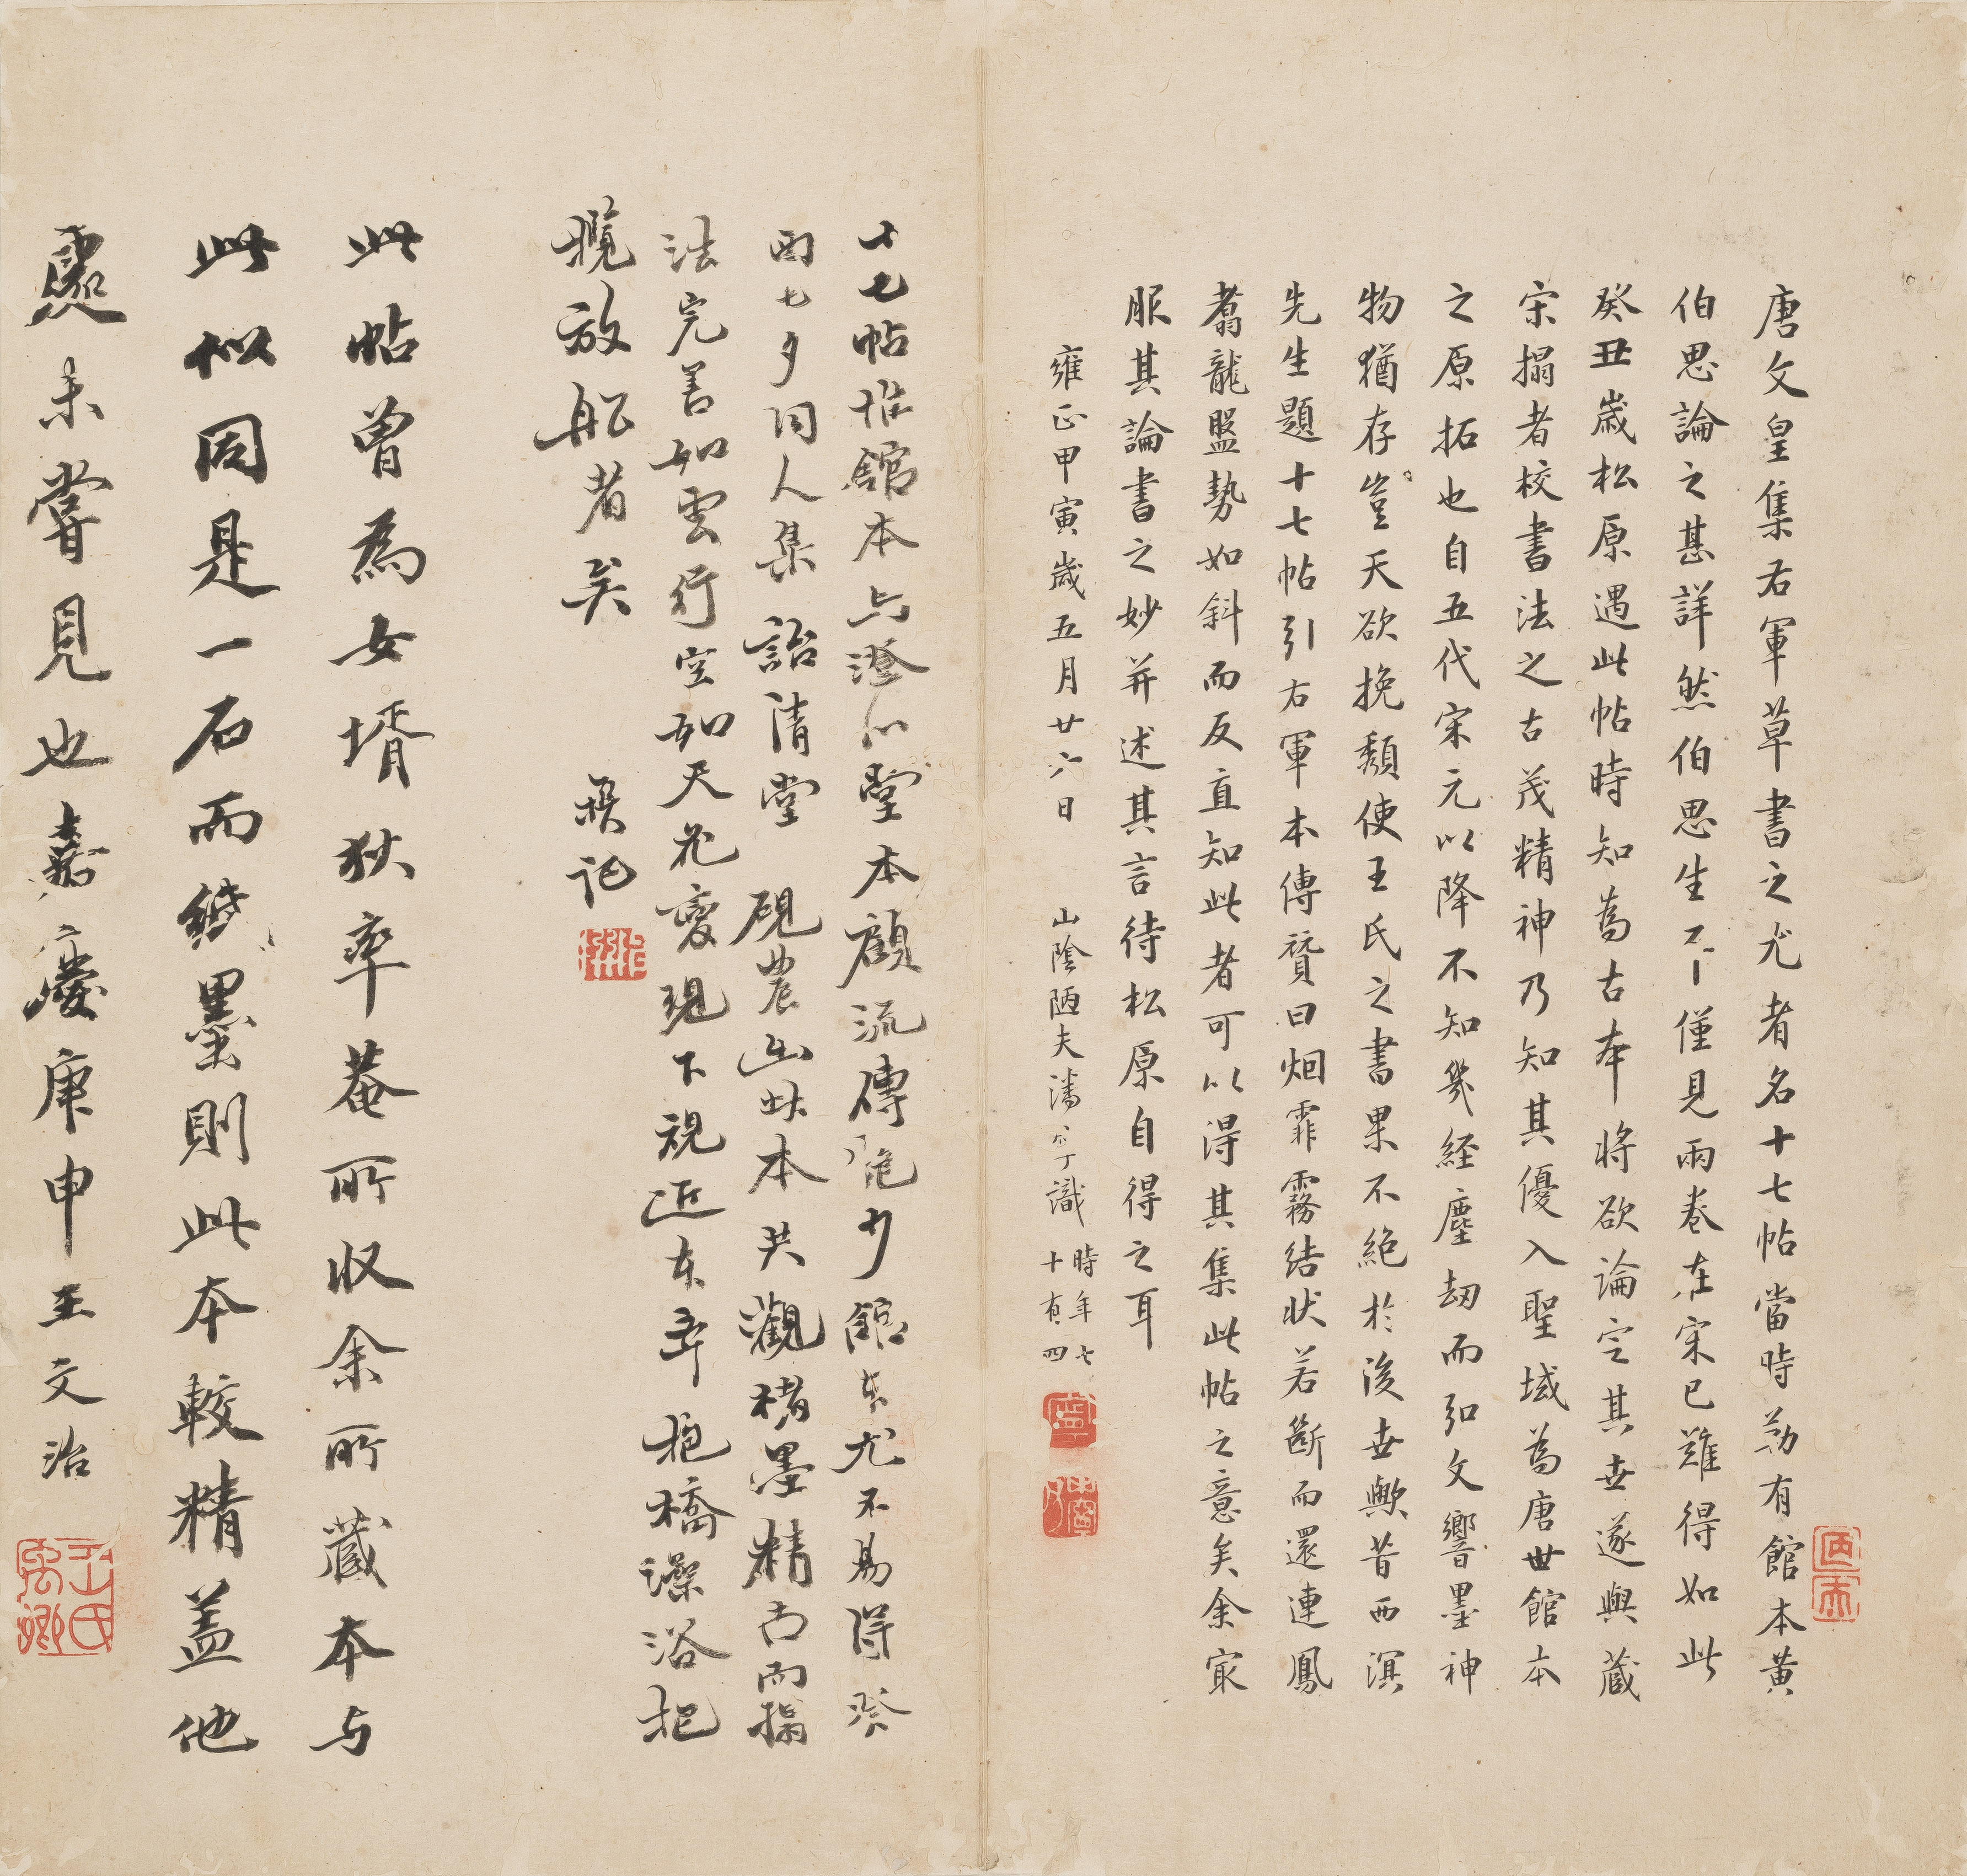 唐文皇集右軍草書之尤者名十七帖當時勒有館本黃
伯思論之甚詳然伯思生平僅見兩卷在宋已難得如此
癸丑歲松原遇此帖時知為古本將欲論定其世遂與蔵
宋搨者校書法之古茂精神乃知其優入聖域為唐世館本
之原拓也自五代宋元以降不知幾経塵刼而弘文響墨神
物猶存豈天欲挽頹使王氏之書果不絶於後世歟昔西溟
先生題十七帖引右軍本傳贊曰烟霏霧結狀若斷而還連鳳
翥龍盤勢如斜而反直知此者可以得其集此帖之意矣余㝡
服其論書之妙并述其言待松原自得之耳
雍正甲寅歲五月廿六日 山陰陋夫潘寧識 時年七十有四
十七帖惟館本与澄心堂本顧流傳絶少館本尤不易得癸
酉七夕同人集詒清堂 硯農出此本共觀楮墨精古而搨
法完善如雲行空如天花變現下視近本辛 抱橋澡浴把
攬放船者矣
此帖曾為女壻狄率菴所收余所藏本与
此似同是一石而紙墨則此本較精盖他
處未嘗見也嘉慶庚申王文治